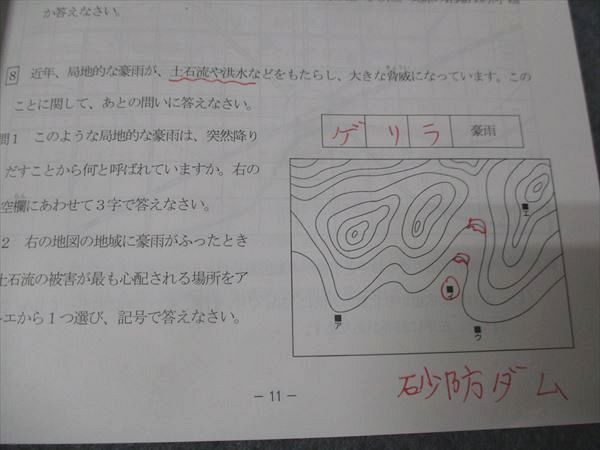 か答えなさい。
8 近年、局地的な豪雨が、土石流や洪水などをもたらし、大きな脅威になっています。この
きょうい
ことに関して、あとの問いに答えなさい。
問1 このような局地的な豪雨は、突然降り
だすことから何と呼ばれていますか。右の
らん
空欄にあわせて3字で答えなさい。
2 右の地図の地域に豪雨がふったとき
土石流の被害が最も心配される場所をア
～エから1つ選び、記号で答えなさい。
ゲ リ ラ 豪雨
エ
イ
ア
ウ
砂防ダム
－ 11 －